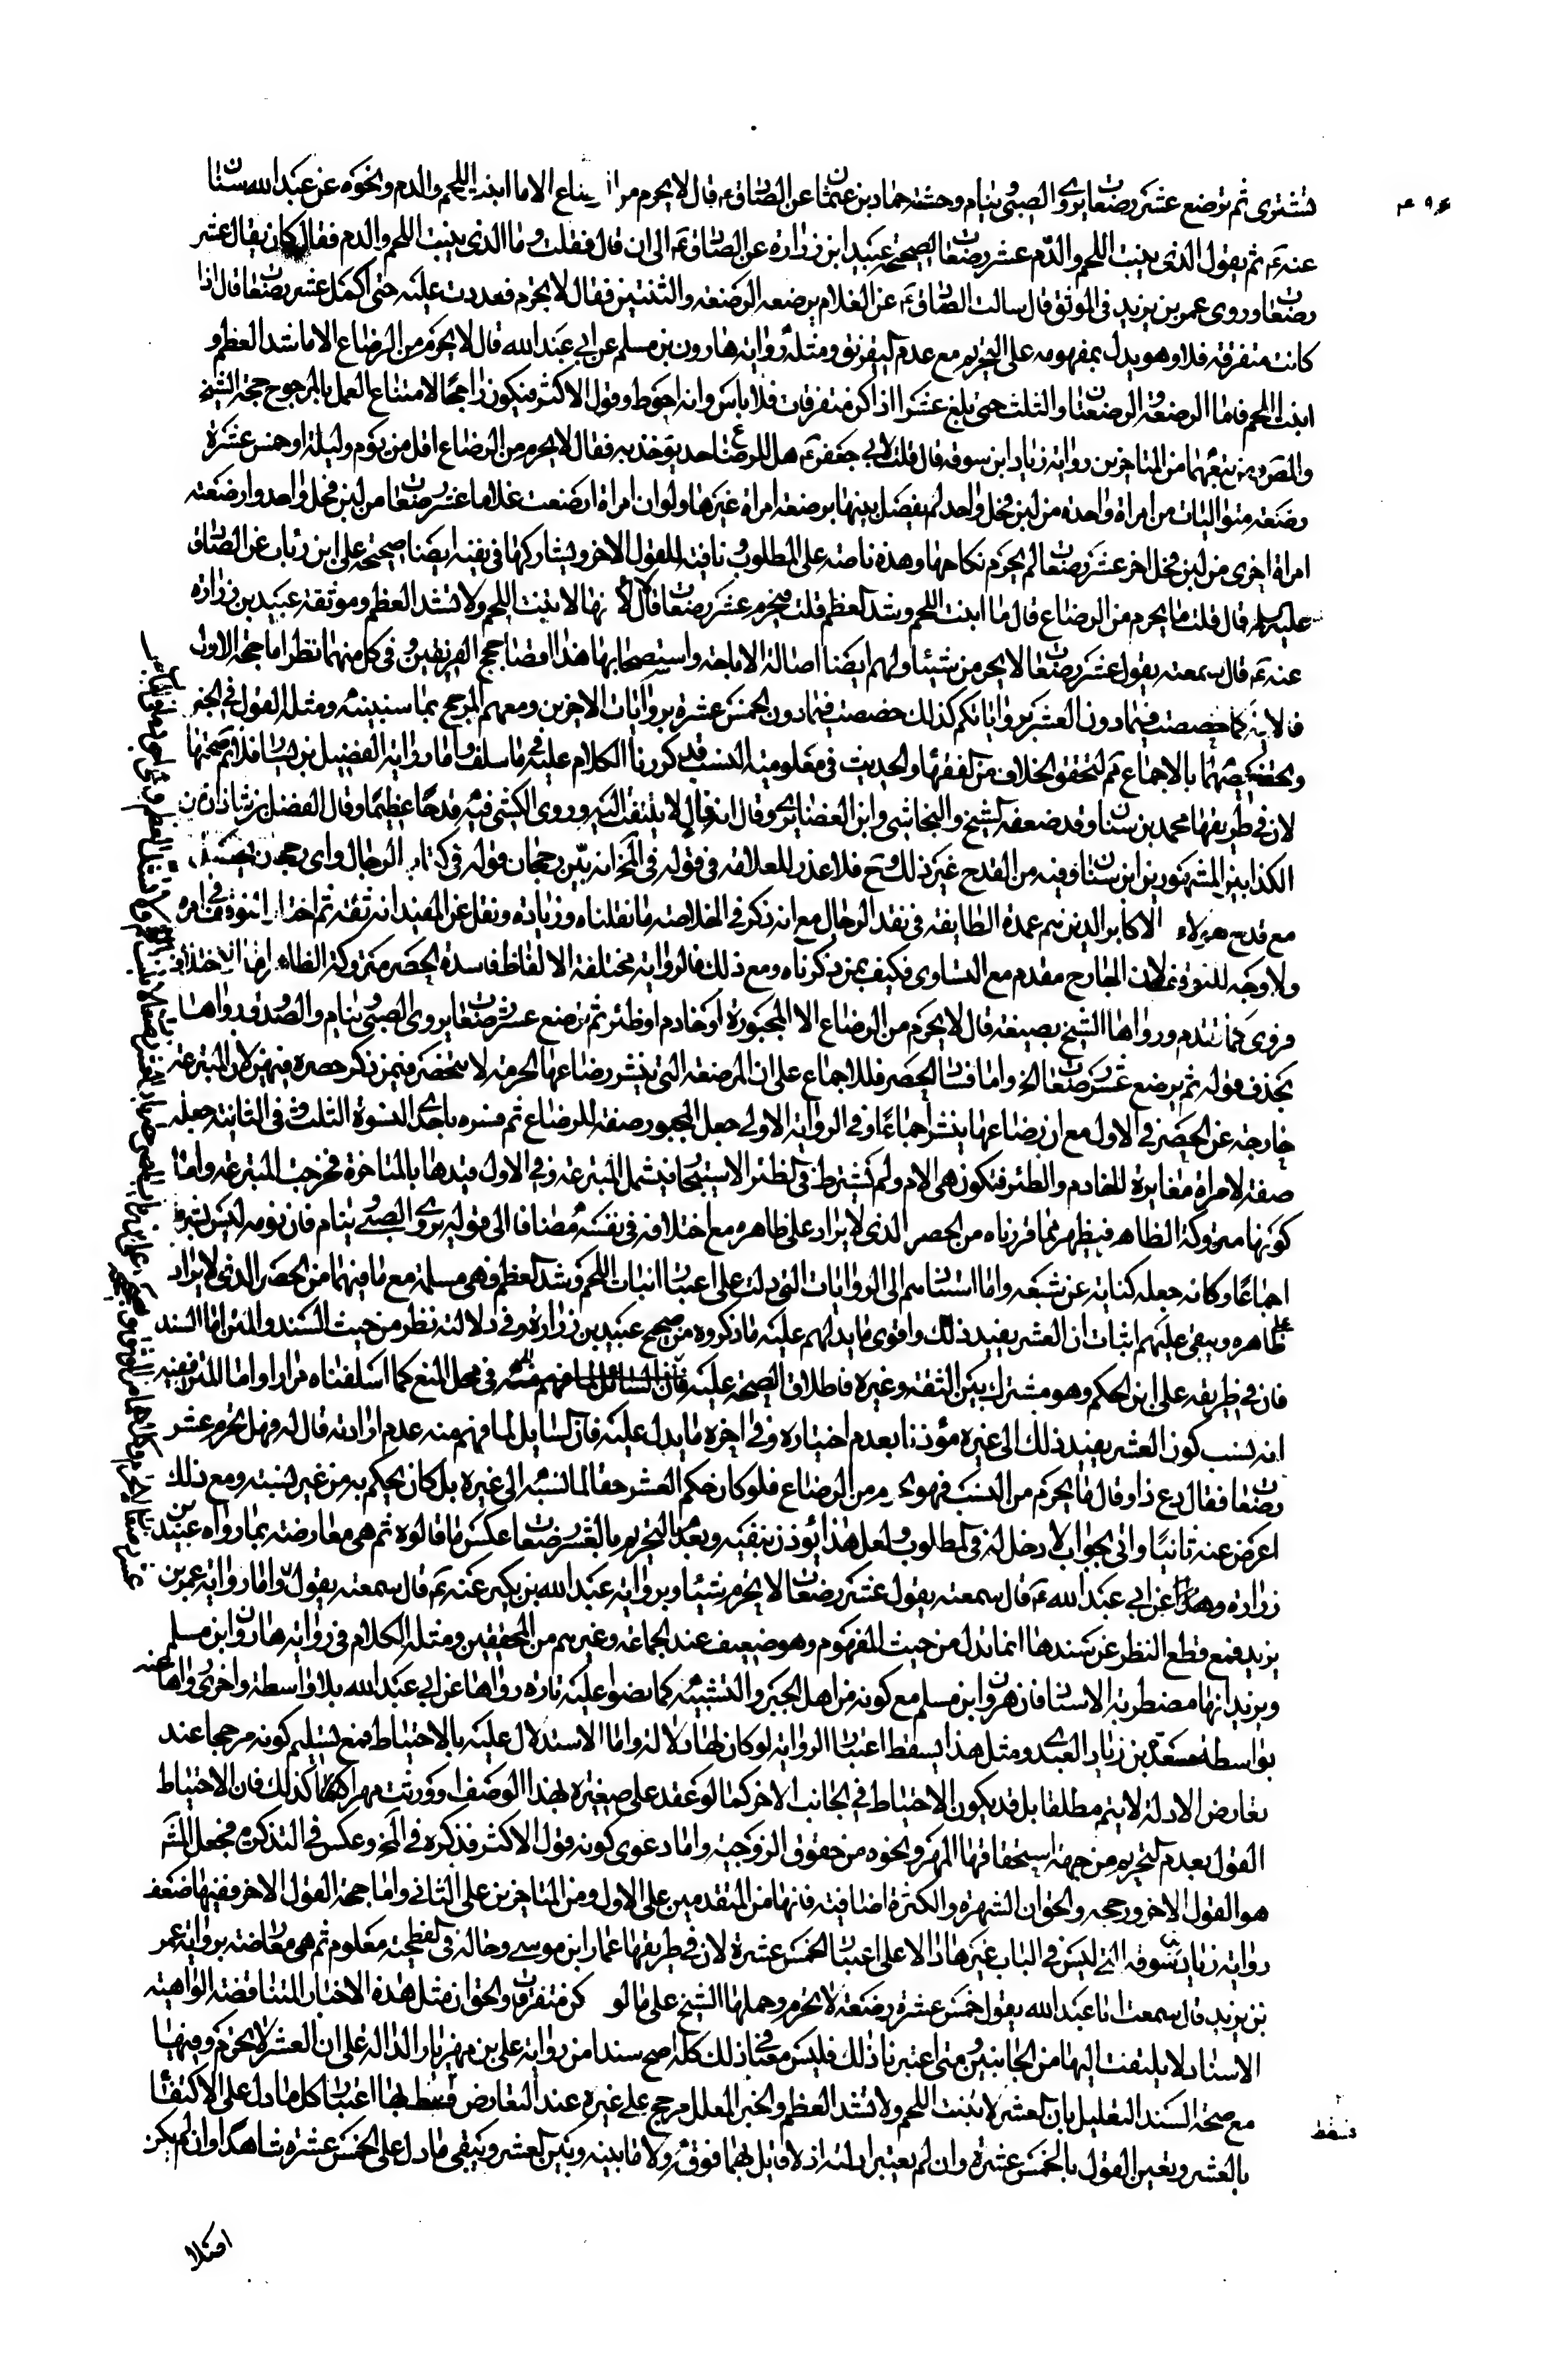 تشترى ثم ترضع عشر رضعات يروى الصبى وينام وحسنة حماد بن عثمان عن الصادق ع قال لا يحرم من الرضاع الا ما انبت اللحم والدم ونحوه عن عبد الله بن سنان
عنه ع ثم يقول الذى ينبت اللحم والدم عشر رضعات لصحيحة عبيد ابن زرارة عن الصادق ع الى ان قال فقلت وما الذى ينبت اللحم والدم فقال كان يقال عشر
رضعات وروى عمر بن يزيد فى الموثق قال سالت الصادق ع عن الغلام يرضع الرضعة والثنتين فقال لا يحرم فعددت عليه حتى اكمل عشر رضعات قال اذا
كانت متفرقة فلا وهو يدل بمفهومه على التحريم مع عدم التفريق ومثله رواية هارون بن مسلم عن ابى عبد الله قال لا يحرم من الرضاع الا ما شد العظم و
انبت اللحم فاما الرضعة والرضعتان والثلث حتى بلغ عشرا اذا كن متفرقات فلا باس وانه احوط وقول الاكثر فيكون راجحا لامتناع العمل بالمرجوح حجة الشيخ
والمص ومن تبعهما من المتاخرين رواية زياد ابن سوقه قال قلت لابى جعفر ع هل للرضاع حد يؤخذ به فقال لا يحرم من الرضاع اقل من يوم وليلة او خمس عشرة
رضعة متواليات من امراة واحدة من لبن فحل واحد لم يفصل بينها برضعة امراة غيرها ولو ان امراة ارضعت غلاما عشر رضعات من لبن فحل واحد وارضعته
امراة اخرى من لبن فحل اخر عشر رضعات لم يحرم نكاحها وهذه ناصة على المطلوب ونافية للقول الاخر ويشاركها فى نفيه ايضا صحيحة على ابن رئاب عن الصادق
عليه السلام قال قلت ما يحرم من الرضاع قال ما انبت اللحم وشد العظم قلت فيحرم عشر رضعات قال لا لانها لا تنبت اللحم ولا تشد العظم وموثقة عبيد بن زرارة
عنه ع قال سمعته يقول عشر رضعات لا يحرمن شيئا ولهم ايضا اصالة الاباحة واستصحابها هذا اقصا حجج الفريقين وفى كل منهما نظر اما حجة الاول
فالاية كما خصصت فيما دون العشر برواياتكم كذلك خصصت فيما دون الخمس عشرة بروايات الاخرين ومعهم المرجح بما سنبينه ومثله القول فى الخبر
وتخصيصهما بالاجماع ثم لتحقق الخلاف من الفقهاء والحديث فى معلومية النسب قد كررنا الكلام عليه فيما سلف واما رواية الفضيل بن يسار فلا نم صحتها
لان فى طريقها محمد بن سنان وقد ضعفه الشيخ والنجاشى وابن الغضايرى وقال انه غال لا يلتفت اليه وروى الكشى فيه قدحا عظيما وقال الفضل بن شاذان من
الكذابين المشهورين ابن سنان وفيه من القدح غير ذلك وح فلا عذر للعلامة فى قوله فى المخ انه بين رجحان قوله فى كتاب الرجال واى رجحان يحصل
مع قدح هؤلاء الاكابر الذين هم عمدة الطايفة فى نقد الرجال مع انه ذكر فى الخلاصة ما نقلناه وزيادة ونقل عن المفيد انه ثقة ثم اختار التوقف فى امره
ولا وجه للتوقف لان الجارح مقدم مع التساوى فكيف بمن ذكرناه ومع ذلك فالرواية مختلفة الالفاظ فاسدة الحصر متروكة الظاهر اما الاختلاف
فروى كما تقدم ورواها الشيخ بصيغة قال لا يحرم من الرضاع الا المجبورة او خادم او ظئر ثم ترضع عشر رضعات يروى الصبى وينام والصدوق رواها
بحذف قوله ثم يرضع عشر رضعات الخ واما فساد الحصر فللاجماع على ان المرضعة التى ينشر رضاعها الحرمة لا تنحصر فيمن ذكر حصره فيهن لان المتبرعة
خارجة عن الحصر فى الاول مع ان رضاعها ينشر اجماعا وفى الرواية الاولى جعل المجبور صفة للرضاع ثم فسره باحدى النسوة الثلث وفى الثانية جعله
صفة لامراة مغايرة للخادم والظئر فتكون هى الام ولم يشترط فى الظئر الاستيجار فيشمل المتبرعة وفى الاول قيدها بالمتاجرة فخرجت المتبرعة واما
كونها متروكة الظاهر فيظهر مما قررناه من الحصر الذى لا يراد على ظاهره مع اختلافه فى نفسه مضافا الى قوله يروى الصبى وينام فان نومه ليس بشرط
اجماعا وكانه جعله كناية عن شبعه واما استنادهم الى الروايات التى دلت على اعتبار انبات اللحم وشد العظم فهى مسلمة مع ما فيها من الحصر الذى لا يراد
ظاهره ويبقى عليهم اثبات ان العشر يفيد ذلك واقوى ما يدلهم عليه ما ذكروه من صحيح عبيد بن زرارة وفى دلالته نظر من حيث السند والمتن اما السند
فان فى طريقه على ابن الحكم وهو مشترك بين الثقة وغيره فاطلاق الصحة عليه فى محل المنع كما اسلفناه مرارا واما المتن ففيه
انه نسب كون العشر يفيد ذلك الى غيره مؤذنا بعدم اختياره وفى اخره ما يدل عليه فان السايل لما فهم منه عدم ارادته قال له فهل تحرم عشر
رضعات فقال دع ذا وقال ما يحرم من النسب فهو يحرم من الرضاع فلو كان حكم العشر حقا لما نسبه الى غيره بل كان يحكم به من غير نسبة ومع ذلك
اعرض عنه ثانيا واتى بجواب لا دخل له فى المطلوب ولعل هذا يؤذن بنفيه وبعد التحريم بالعشر رضعات عكس ما قالوه ثم هى معارضة بما رواه عبيد بن
زرارة وهذا عن ابى عبد الله ع قال سمعته يقول عشر رضعات لا يحرم شيئا وبرواية عبد الله بن بكير عنه ع قال سمعته يقول واما رواية عمر بن
يزيد فمع قطع النظر عن سندها انما تدل من حيث المفهوم وهو ضعيف عند الجماعة وغيرهم من المحققين ومثله الكلام فى رواية هارون ابن مسلم
ويزيد انها مضطربة الاسناد فان هرون ابن مسلم مع كونه من اهل الجبر والتشبيه كما نصوا عليه تارة رواها عن ابى عبد الله بلا واسطة واخرى رواها عنه
بواسطة مسعدة بن زياد العبدى ومثل هذا يسقط اعتبار الرواية لو كان لها دلالة واما الاستدلال عليه بالاحتياط فمع تسليم كونه مرجحا عند
تعارض الادلة لا يتم مطلقا بل قد يكون الاحتياط فى الجانب الاخر كما لو عقد على صغيرة بهذا الوصف وورثت مهرا كذلك فان الاحتياط
القول بعدم التحريم من جهة استحقاقها المهر ونحوه من حقوق الزوجية واما دعوى كونه قول الاكثر فذكره فى المخ وعكس فى التذكرة فجعل المشهور
هو القول الاخر ورجحه والحق ان الشهرة والكثرة اضافية فانها من المتقدمين على الاول ومن المتاخرين على الثانى واما حجة القول الاخر ففيها ضعف
رواية زياد بن سوقه التى ليس فى الباب غيرها دالا على اعتبار الخمس عشرة لان فى طريقها عمار ابن موسى وحاله فى الفطحية معلوم ثم هى معارضة برواية عمر
بن يزيد قال سمعت ابا عبد الله يقول خمس عشرة رضعة لا تحرم وحملها الشيخ على ما لو كن متفرقات والحق ان مثل هذه الاخبار المتناقضة الواهية
الاسناد لا يلتفت اليها من الجانبين ومتى اعتبرنا ذلك فليس معنا فى ذلك كله اصح سندا من رواية على بن مهزيار الدالة على ان العشر لا تحرم وفيها
مع صحة السند التعليل بان العشر لا تنبت اللحم ولا تشد العظم والخبر المعلل مرجح على غيره عند التعارض فسقط بها اعتبار كل ما دل على الاكتفاء
بالعشر وتعين القول بالخمس عشرة وان لم يعتبر ادلته اذ لا قايل بهما فوقه ولا ما بينه وبين العشر ويبقى ما دل على الخمس عشرة شاهدا وان لم يكن
فسقط
اصلا